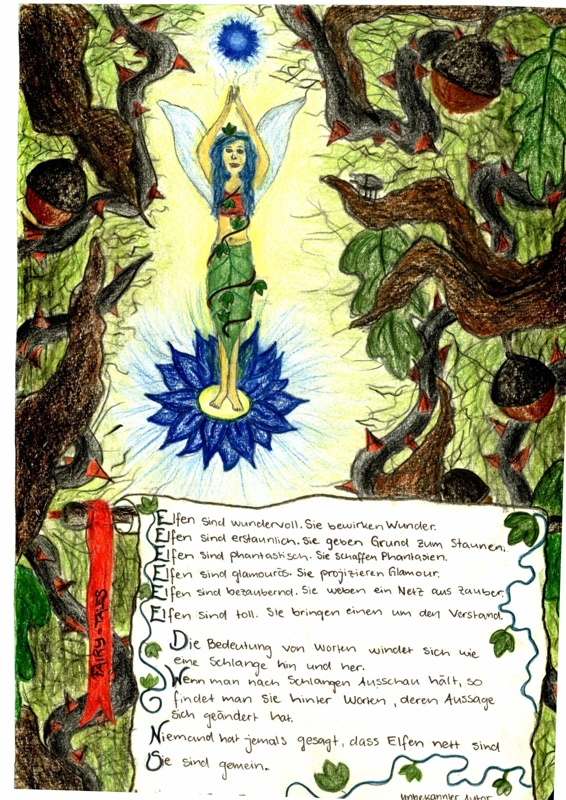 Elfen sind wundervoll. Sie bewirken Wunder.
Elfen sind erstaunlich. Sie geben Grund zum Staunen.
Elfen sind phantastisch. Sie schaffen Phantasien.
Elfen sind glamourös. Sie projizieren Glamour.
Elfen sind bezaubernd. Sie weben ein Netz aus Zauber.
Elfen sind toll. Sie bringen einen um den Verstand.
Die Bedeutung von Worten windet sich wie
eine Schlange hin und her.
Wenn man nach Schlangen Ausschau hält, so
findet man Sie hinter Worten, deren Aussage
sich geändert hat.
Niemand hat jemals gesagt, dass Elfen nett sind
Sie sind gemein.
unbekannter Autor
FAIRY-TALES